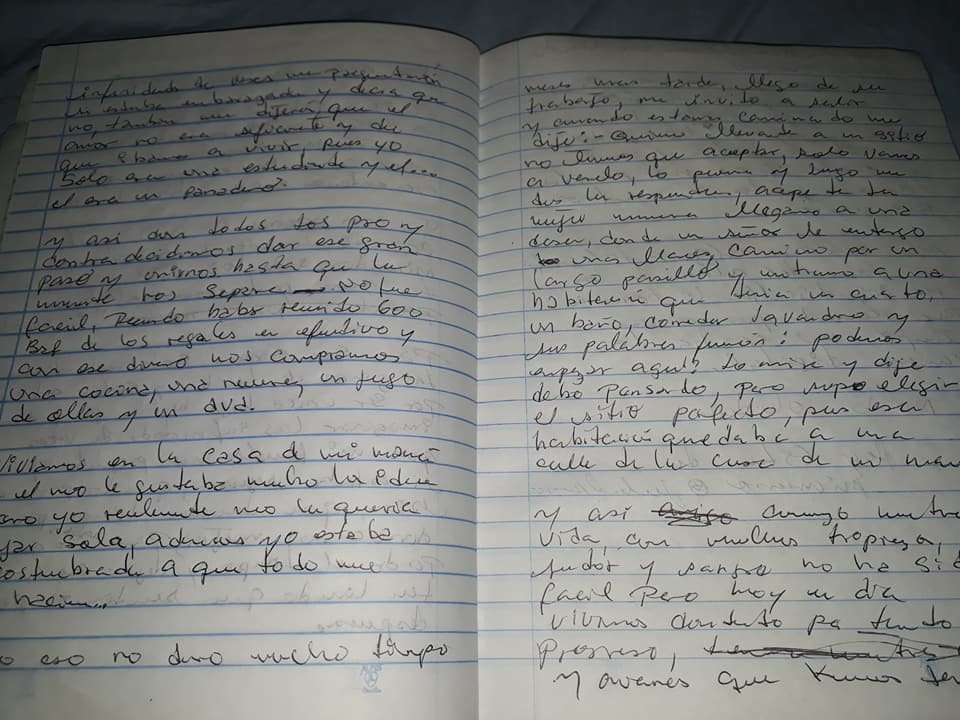 infinidad de veces me preguntaron
si estaba embarazada y decia que
no, tambien me dijeron que el
amor no era suficiente y de
que ibamos a vivir, pues yo
solo era una estudiante y
el era un panadero.
y asi con todos los pro y
contra decidimos dar ese gran
paso y unirnos hasta que la
muerte nos separe No fue
facil, Recuerdo haber reunido 600
Bsf de los regalos en efectivo y
con ese dinero nos compramos
una cocina, una nevera, un juego
de ollas y un dvd.
Viviamos en la casa de mi mamá
el no le gustaba mucho la idea
pero yo realmente no la queria
dejar sola, ademas yo estaba
costubrada a que todo me
hacian...
o eso no duro mucho tiempo
meses mas tarde, llego de su
trabajo, me invito a salir
y cuando estamos caminando me
dijo: - Quiero llevarte a un sitio
no tienes que aceptar, solo vamos
a verlo, lo piensa y luego me
das la respuesta, acepte
llegamos a una
donde un señor le entrego
una llave, camino por un
largo pasillo y entramo a una
habitación que tenia un cuarto,
un baño, comedor lavandero y
sus palabras fueron: podemos
empezar aqui? lo mire y dije
debo pensarlo, pero supo elegir
el sitio perfecto, pues esa
habitación quedaba a una
calle de la casa de mi mam
y asi comenzo nuestra
vida, con muchos tropieza,
sudor y sangre no ha sid
facil Pero hoy en dia
vivimos contento pa tento
Progreso,
y avances que hemos ten